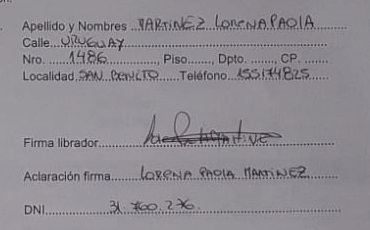 Apellido y Nombres ..MARTINEZ LORENA PAOLA
Calle...URUGUAY
Nro. ....1486.........., Piso......., Dpto. ........, CP. .......
Localidad .SAN BENITO....Teléfono..155174825......
Firma librador
Aclaración firma........LORENA PAOLA MARTINEZ
DNI..................31.700.276